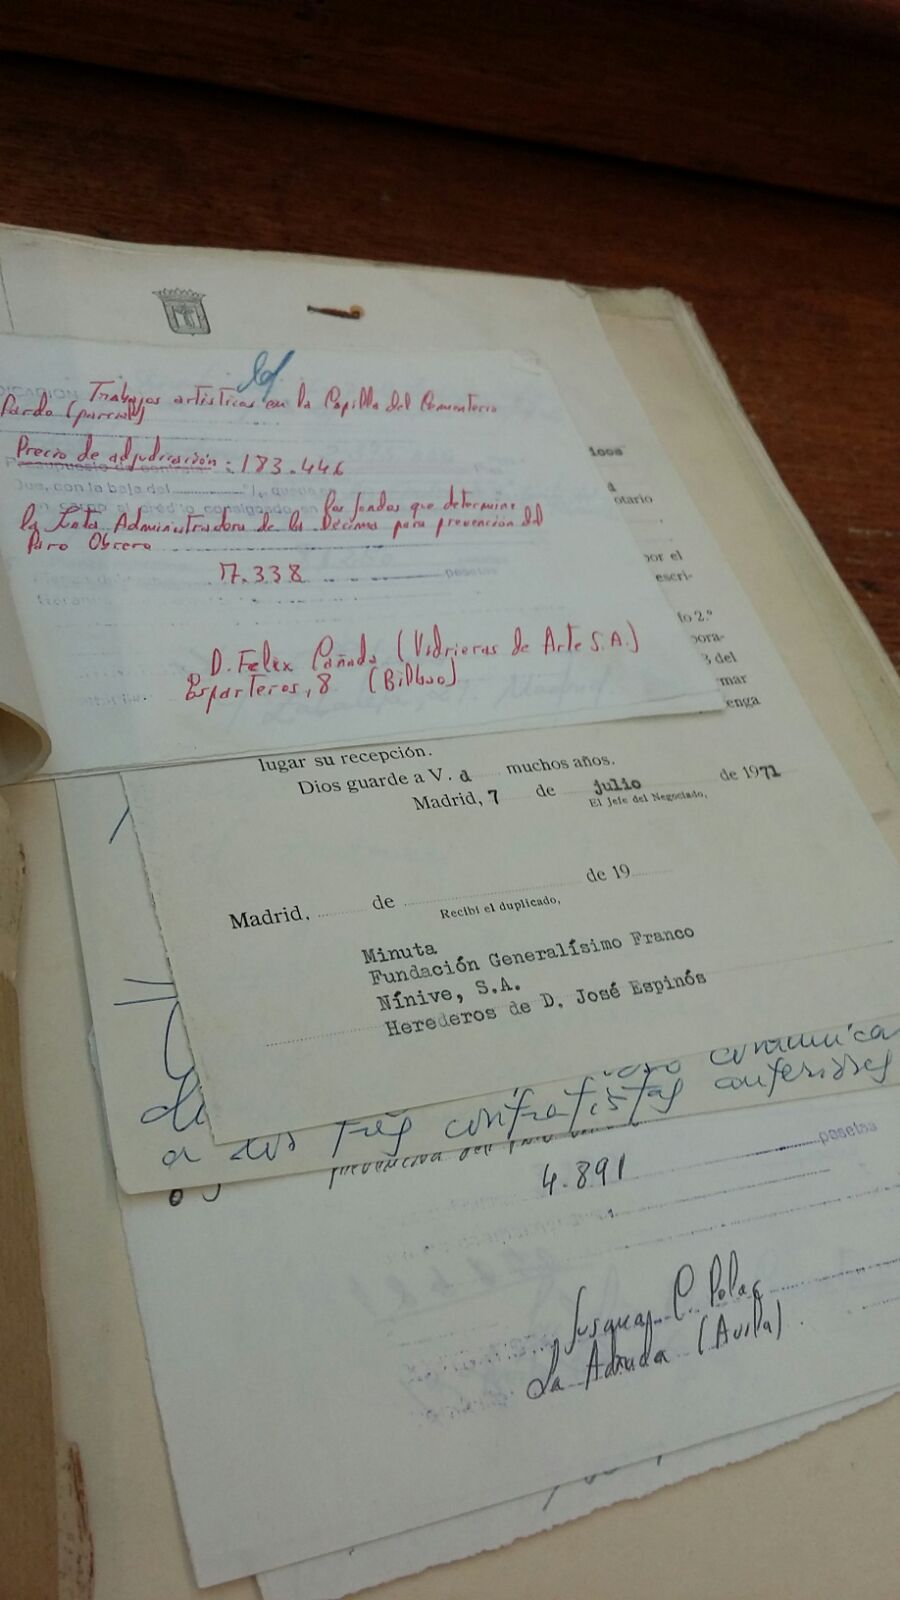 Trabajos artísticos en la Capilla del Cementerio
Pardo (parcial)
Precio de adjudicación : 183.446
Que, con la baja del
los fondos que determine
la Junta Administradora de las Décimas para prevención del
Paro Obrero
7.338 pesetas
D. Felix Cañada (Vidrieras de Arte S.A.)
Esparteros, 8 (Bilbao)
otario
por el
escri-
lo 2.º
pora-
3 del
mar
enga
lugar su recepción.
Dios guarde a V. d muchos años.
Madrid, 7 de julio de 1971
El Jefe del Negociado,
Madrid, de de 19
Recibí el duplicado,
Minuta
Fundación Generalísimo Franco
Nínive, S.A.
Herederos de D. José Espinós
a los tres contratistas anteriores
4.891 pesetas
La Adrada (Avila)